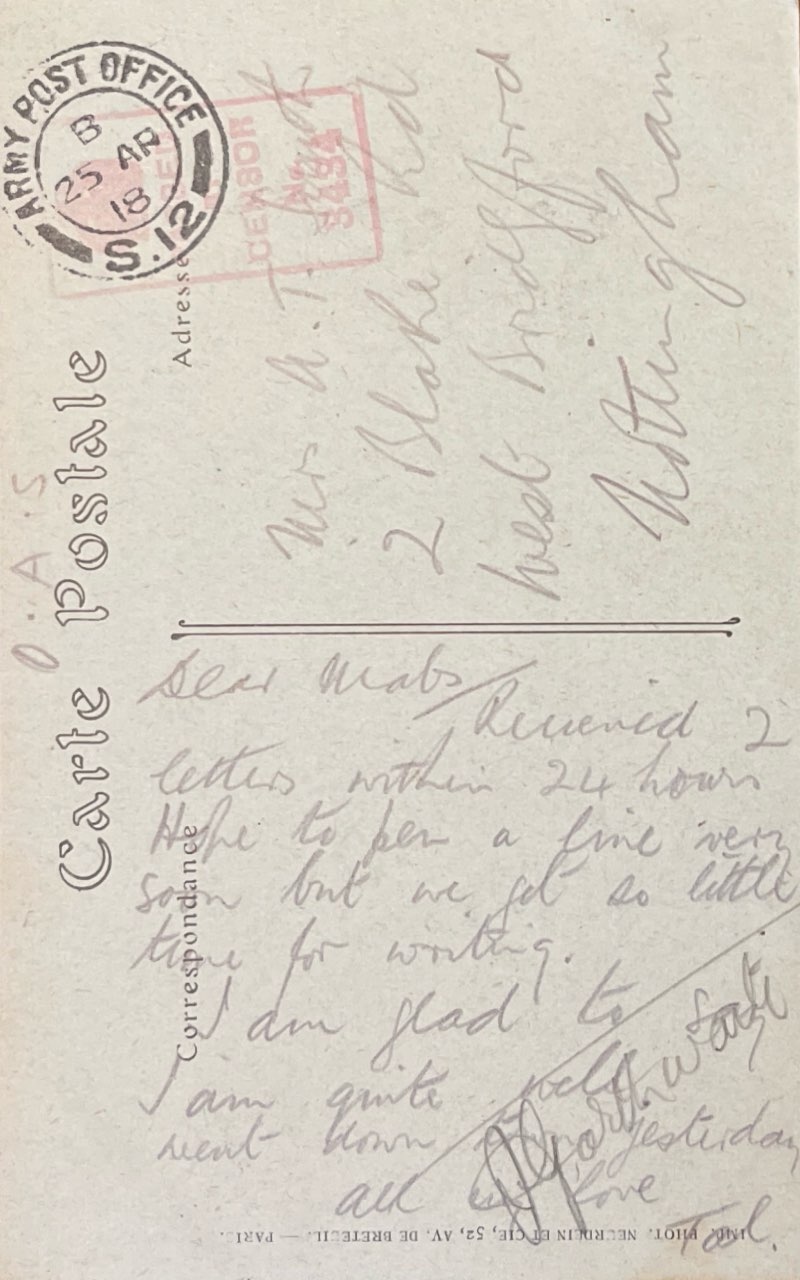 O.A.S
Carte Postale
Correspondance
Dear Mabs
Received 2
letters within 24 hours
Hope to pen a line very
soon but we get so little
time for writing.
I am glad to say
I am quite well.
went down yesterday
all my love
Ted.
Adresse
Mrs A.T.
2 Blake Rd
West Bridgford
Nottingham
ARMY POST OFFICE
B
25 AP
18
S.12
CENSOR
No.
IMP. PHOT. NEURDEIN ET CIE, 52, AV. DE BRETEUIL. — PARIS.